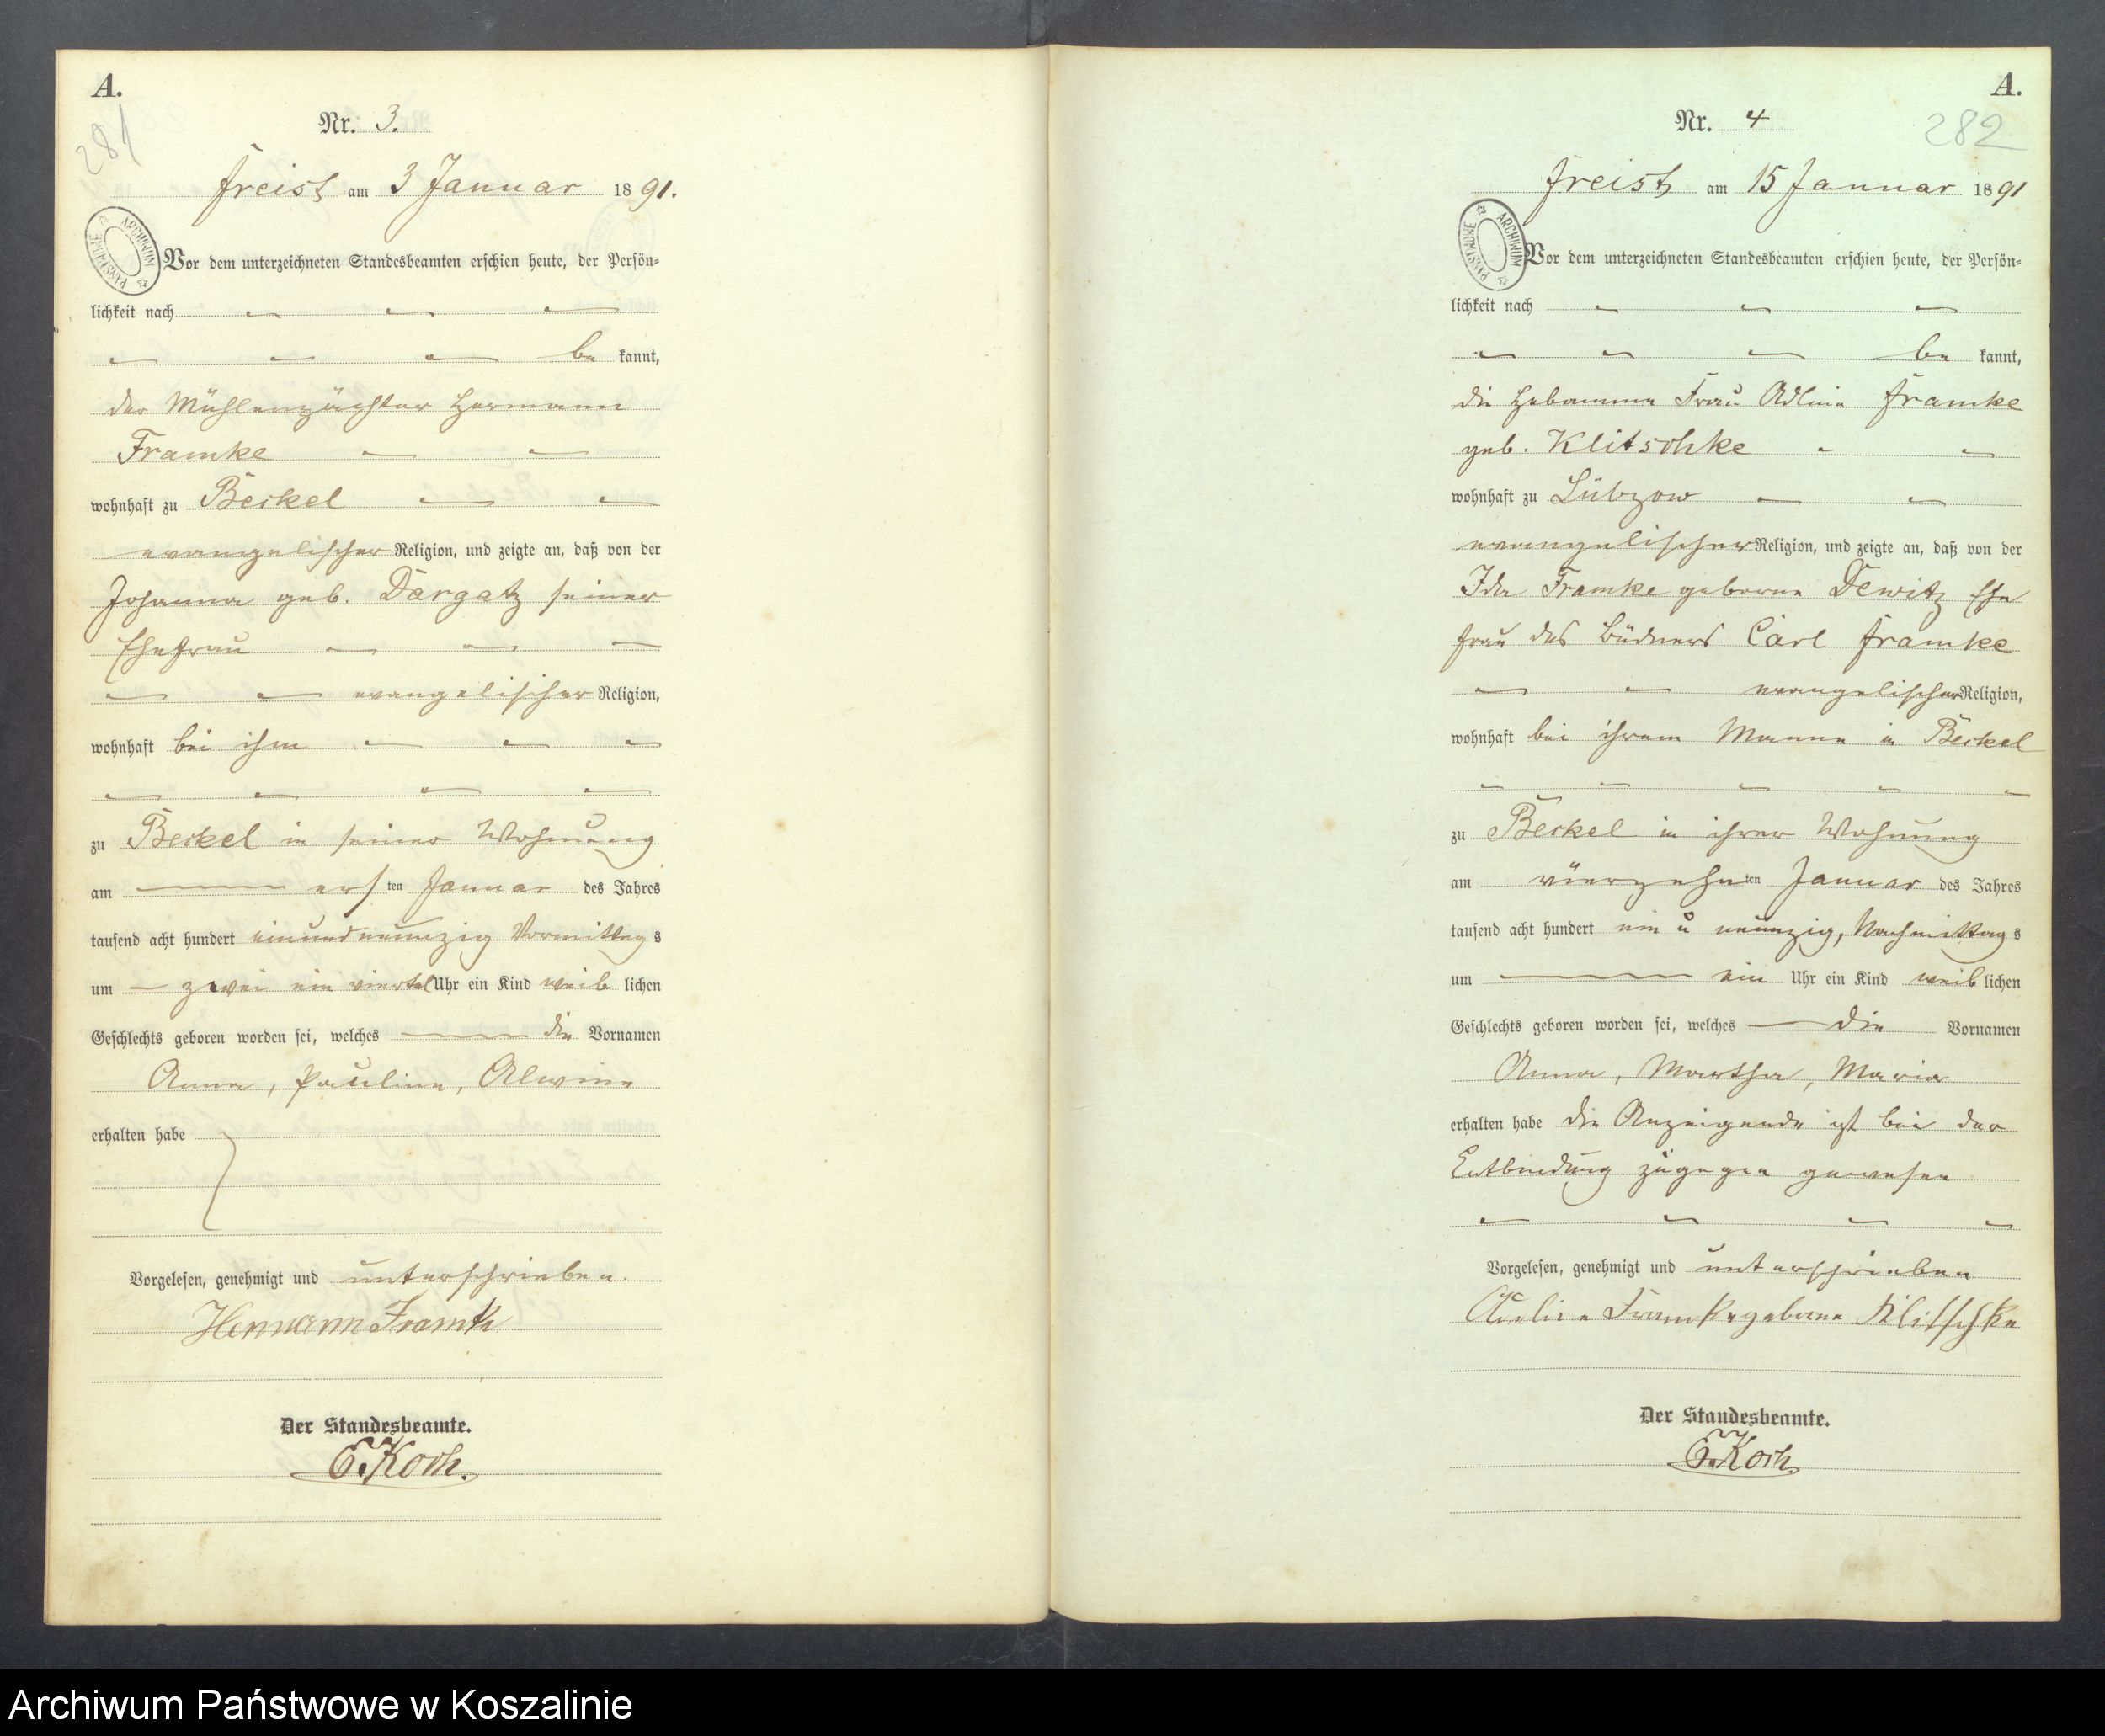 A.
281
Nr. 3.
Freist am 3 Januar 1891.
ARCHIWUM PAŃSTWOWE
Vor dem unterzeichneten Standesbeamten erschien heute, der Persön=
lichkeit nach
be kannt,
der Mühlenpächter Hermann
Framke
wohnhaft zu Beckel
evangelischer Religion, und zeigte an, daß von der
Johanna geb. Dargatz seiner
Ehefrau
evangelischer Religion,
wohnhaft bei ihm
zu Beckel in seiner Wohnung
am ersten Januar des Jahres
tausend acht hundert einundneunzig Vormittags
um zwei ein viertel Uhr ein Kind weiblichen
Geschlechts geboren worden sei, welches die Vornamen
Anna, Pauline, Alwine
erhalten habe
Vorgelesen, genehmigt und unterschrieben.
Hermann Framke
Der Standesbeamte.
E. Koch.
A.
282
Nr. 4
Freist am 15 Januar 1891
ARCHIWUM PAŃSTWOWE
Vor dem unterzeichneten Standesbeamten erschien heute, der Persön=
lichkeit nach
be kannt,
die Hebamme Frau Adline Framke
geb. Klitschke
wohnhaft zu Lübzow
evangelischer Religion, und zeigte an, daß von der
Ida Framke geborne Dewitz Ehe
frau des Büdners Carl Framke
evangelischer Religion,
wohnhaft bei ihrem Manne in Beckel
zu Beckel in ihrer Wohnung
am vierzehnten Januar des Jahres
tausend acht hundert ein u neunzig, Nachmittags
um ein Uhr ein Kind weiblichen
Geschlechts geboren worden sei, welches die Vornamen
Anna, Martha, Maria
erhalten habe die Anzeigende ist bei der
Entbindung zugegen gewesen
Vorgelesen, genehmigt und unterschrieben
Adeline Framke geborne Klitschke
Der Standesbeamte.
E. Koch
Archiwum Państwowe w Koszalinie